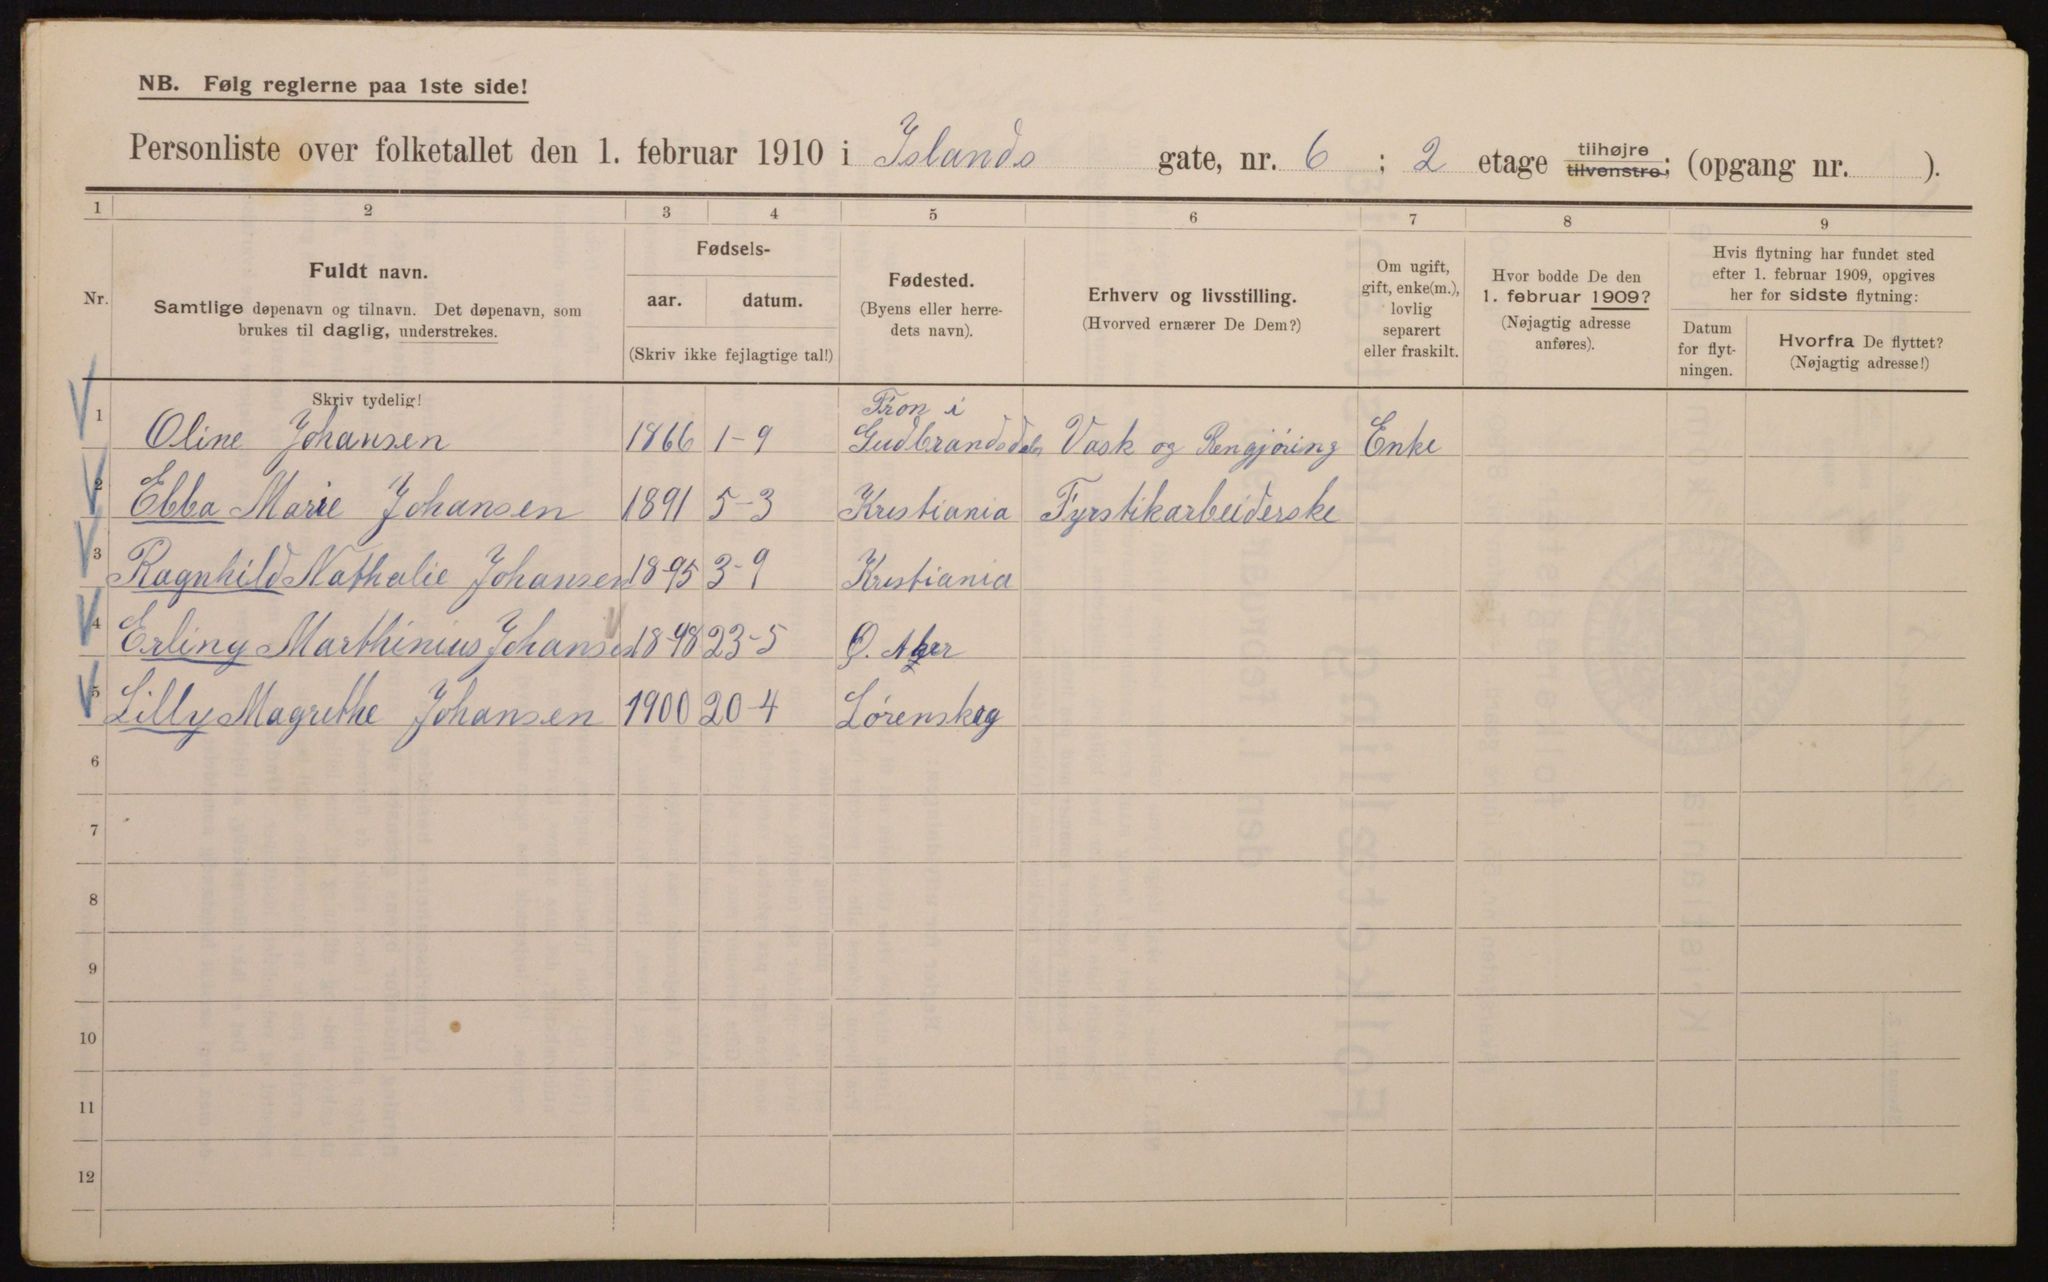 NB. Følg reglerne paa 1ste side!
Personliste over folketallet den 1. februar 1910 i Islands gate, nr. 6 ; 2 etage tilhøjre tilvenstre; (opgang nr. ).
1 2 3 4 5 6 7 8 9
Nr.
Fuldt navn.
Samtlige døpenavn og tilnavn. Det døpenavn, som
brukes til daglig, understrekes.
Fødsels-
aar. datum.
(Skriv ikke fejlagtige tal!)
Fødested.
(Byens eller herre-
dets navn).
Erhverv og livsstilling.
(Hvorved ernærer De Dem?)
Om ugift,
gift, enke(m.),
lovlig
separert
eller fraskilt.
Hvor bodde De den
1. februar 1909?
(Nøjagtig adresse
anføres).
Hvis flytning har fundet sted
efter 1. februar 1909, opgives
her for sidste flytning:
Datum
for flyt-
ningen.
Hvorfra De flyttet?
(Nøjagtig adresse!)
Skriv tydelig!
Fron i
1 Oline Johansen 1866 1-9 Gudbrandsdalen Vask og Rengjøring Enke
2 Ebba Marie Johansen 1891 5-3 Kristiania Fyrstikarbeiderske
3 Ragnhild Nathalie Johansen 1895 3-9 Kristiania
4 Erling Marthinius Johansen 1898 23-5 Ø. Aker
5 Lilly Magrethe Johansen 1900 20-4 Lørenskog
6
7
8
9
10
11
12